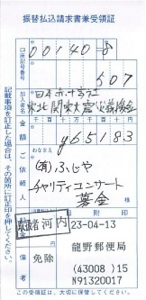 振替払込請求書兼受領証
口座記号番号
00140-8
507
加入者名
日本赤十字社
東北関東大震災義援金
金額
千 百 十 万 千 百 十 円
¥65183
おなまえ
ご依頼人
(有)ふじや
チャリティコンサート
募金
河内
23-04-13
料金
免除
龍野郵便局
備考
(43008)15
N91320017
この受領証は、大切に保管してください。
記載事項を訂正した場合は、その箇所に訂正印を押してください。